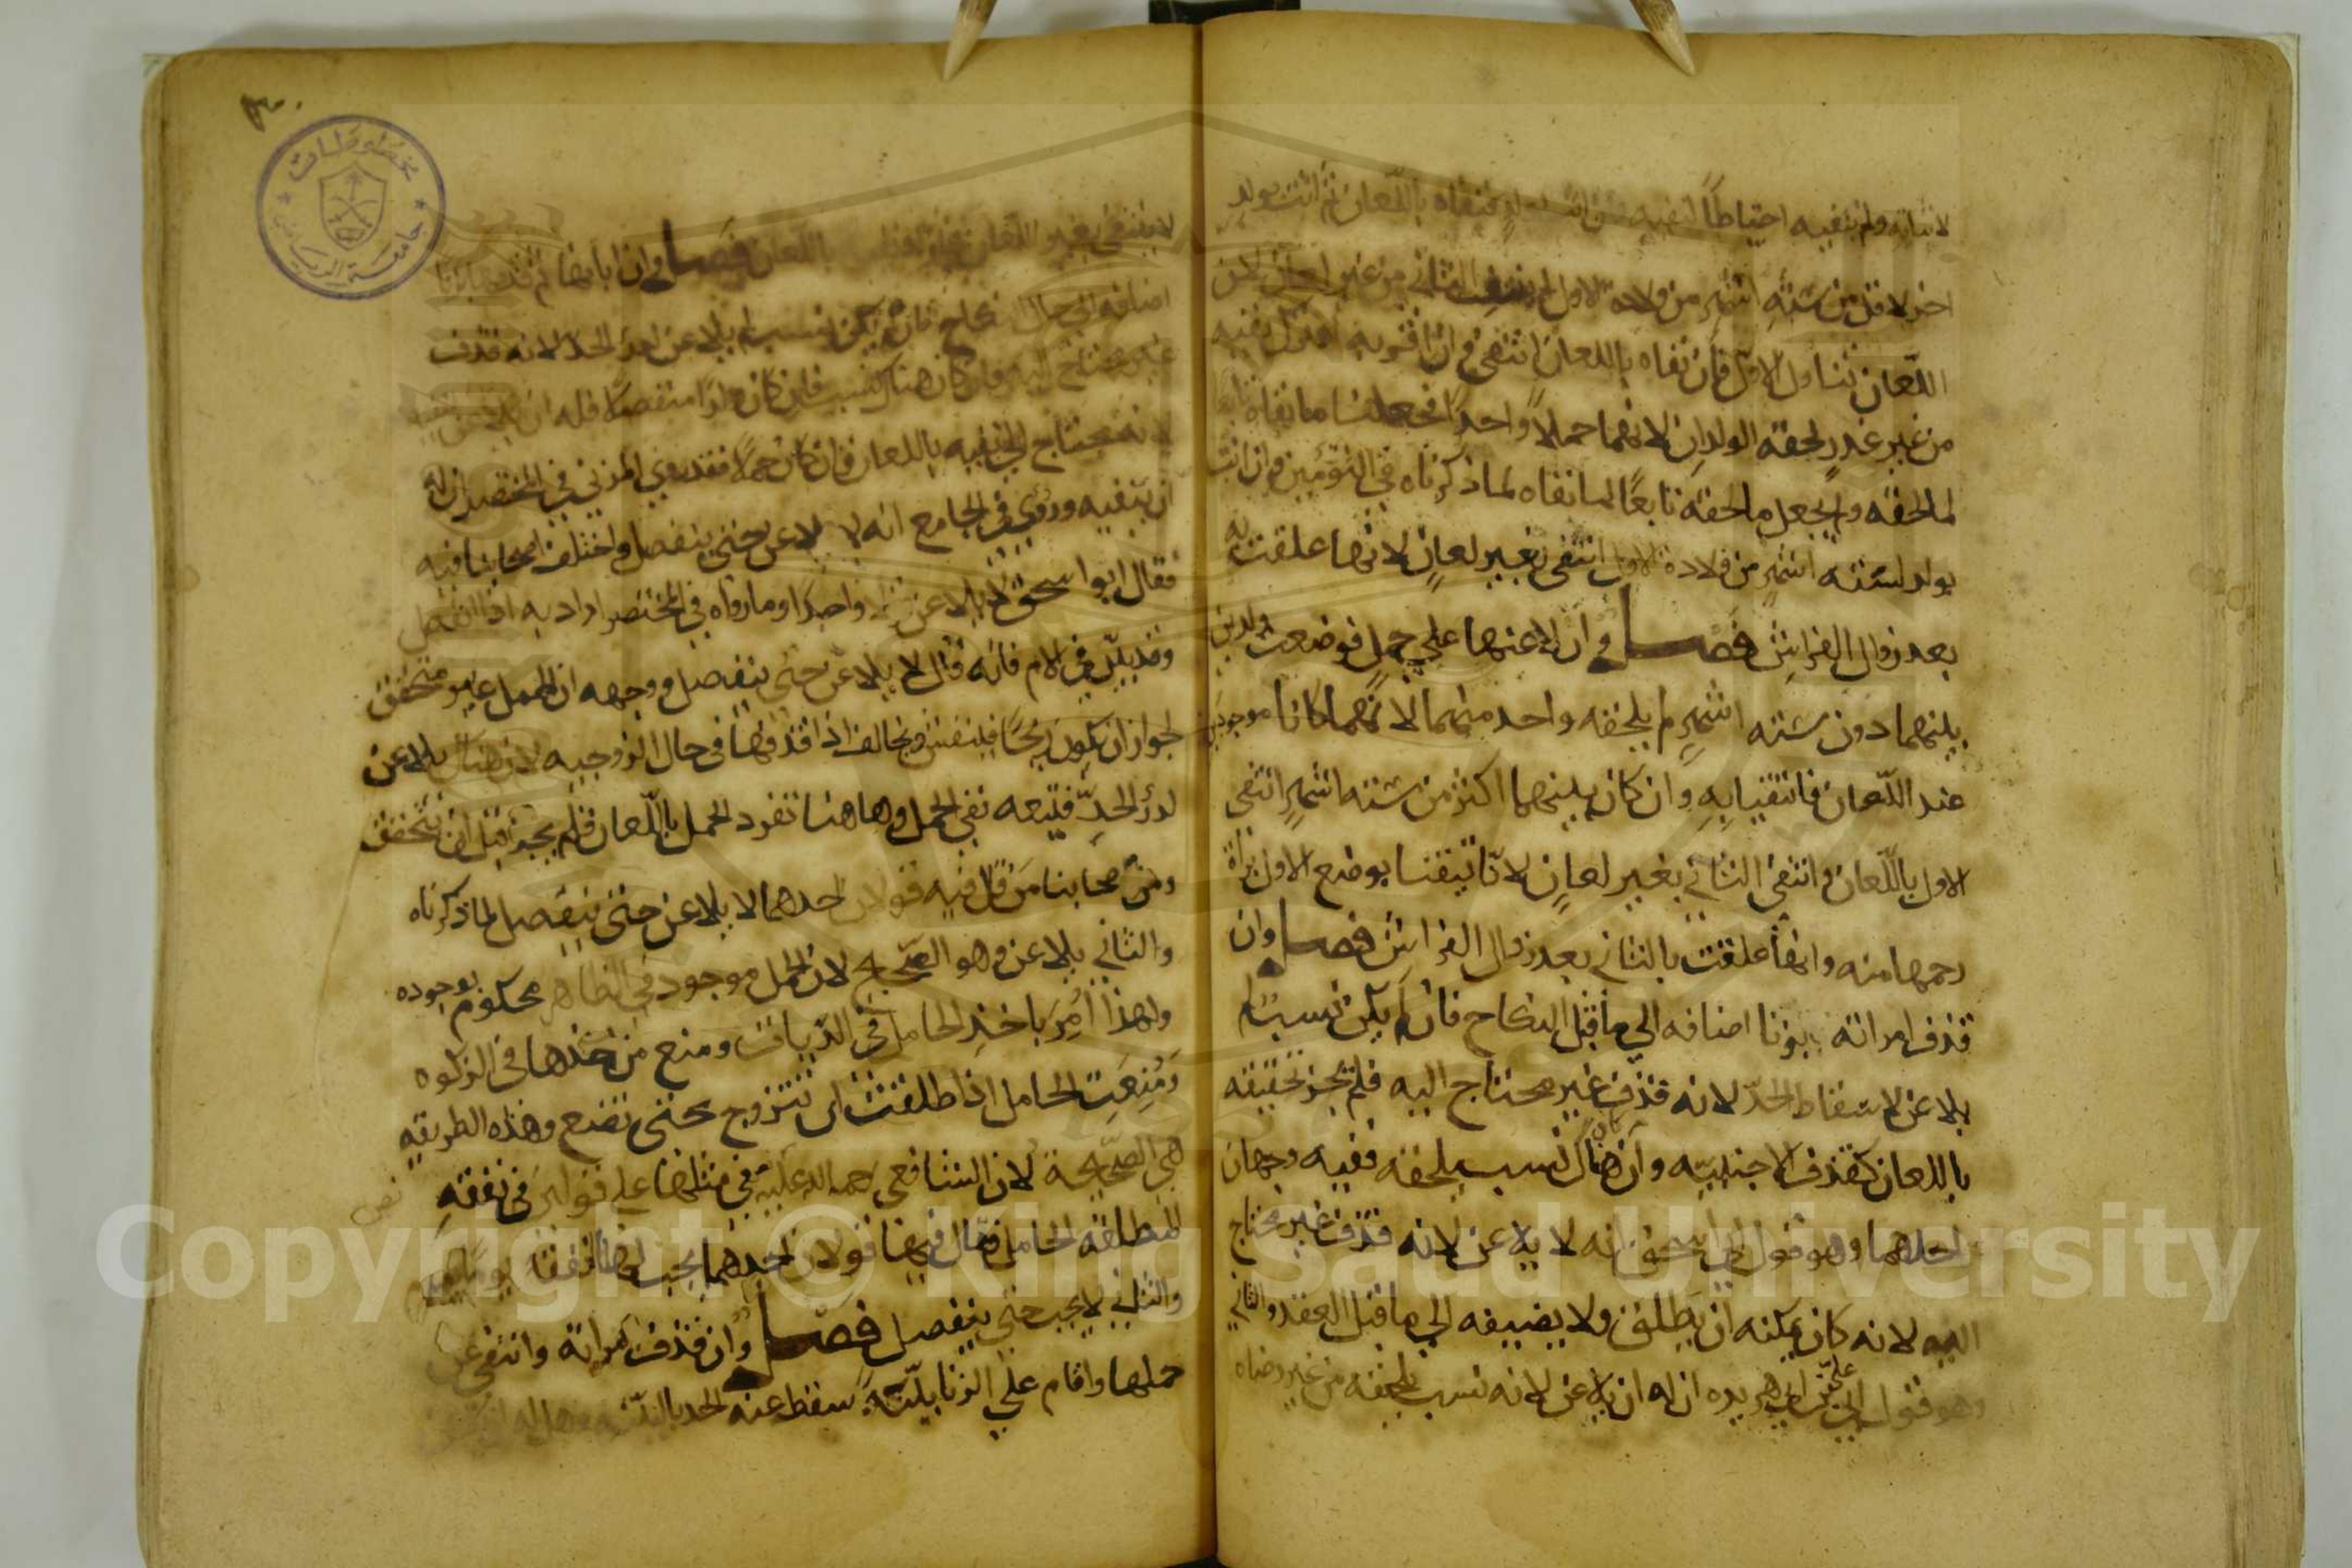 لاثباته ولم ينفيه احتياطًا لنفيه فان اتت بولد فنفاه باللعان ثم اتت بولد
اخر لاقل من ستة اشهر من ولادة الاول لم ينتف الثاني من غير لعان لان
اللعان تناول الاول فان نفاه باللعان انتفى وان اقر به او ترك نفيه
من غير عذر لحقه الولدان لانهما حملا واحد فجعلنا ما نفاه تابعا
لما لحقه ولم يجعل ما لحقه تابعًا لما نفاه لما ذكرناه في التوءمين وان اتت
بولد لستة اشهر من ولادة الاول انتفى بغير لعان لانها علقت به
بعد زوال الفراش فصل وان لاعنها على حمل فوضعت ولدين
بينهما دون ستة اشهر لم يلحقه واحد منهما لانهما كانا موجودين
عند اللعان فانتفيا به وان كان بينهما اكثر من ستة اشهر انتفى
الاول باللعان وانتفى الثاني بغير لعان لانا تيقنا بوضع الاول براة
رحمها منه وانها علقت بالثاني بعد زوال الفراش فصل وان
قذف امراته بزنا اضافه الي ما قبل النكاح فان لم يكن نسب لم
يلاعن لاسقاط الحد لانه قذف غير محتاج اليه فلم يجز تحقيقه
باللعان كقذف الاجنبيه وان كان هناك نسب يلحقه ففيه وجهان
احدهما وهو قول ابي اسحق انه لا يلاعن لانه قذف غير محتاج
اليه لانه كان يمكنه ان يطلق ولا يضيفه الي ما قبل العقد والثاني
وهو قول ابي علي بن ابي هريره ان له ان يلاعن لانه نسب يلحقه من غير رضاه
لا ينتفى بغير اللعان فجاز له باللعان فصل وان ابانها ثم قذفها بزنا
اضافه الي حال النكاح فان لم يكن نسب لم يلاعن لدرء الحد لانه قذف
غير محتاج اليه وان كان هناك نسب فان كان ولدًا منفصلا فله ان يلاعن
لانه يحتاج الي نفيه باللعان فان كان حملا فقد روي المزني في المختصر ان له
ان ينفيه وروي في الجامع انه لا يلاعن حتى ينفصل واختلف اصحابنا فيه
فقال ابو اسحق لا يلاعن قولا واحدًا وما رواه في المختصر اراد به اذا انفصل
وقد بين في الام فانه قال لا يلاعن حتى ينفصل ووجهه ان الحمل غير متحقق
لجواز ان يكون ريحًا فينفش ويخالف اذا قذفها في حال الزوجيه لان هناك يلاعن
لدرء الحد فيتبعه نفي الحمل وها هنا تفرد الحمل باللعان فلم يجز قبل ان يتحقق
ومن اصحابنا من قال فيه قولان احدهما لا يلاعن حتى ينفصل لما ذكرناه
والثاني يلاعن وهو الصحيح لان الحمل موجود في الظاهر محكوم بوجوده
ولهذا امر باخذ الحامل في الديات ومنع من اخذها في الزكوه
ومنعت الحامل اذا طلقت ان تتزوج حتى تضع وهذه الطريقه
هي الصحيحة لان الشافعي رحمه الله عليه نص في مثلها علي قولين في نفقة
المطلقه الحامل فقال فيها قولان احدهما يجب لها النفقه يومًا
والثاني لا يجب حتى ينفصل فصل وان قذف امراته وانتفى عن
حملها واقام علي الزنا بينة سقط عنه الحد بالبينه وهل له
مخطوطات
جامعة الرياض
Copyright © King Saud University